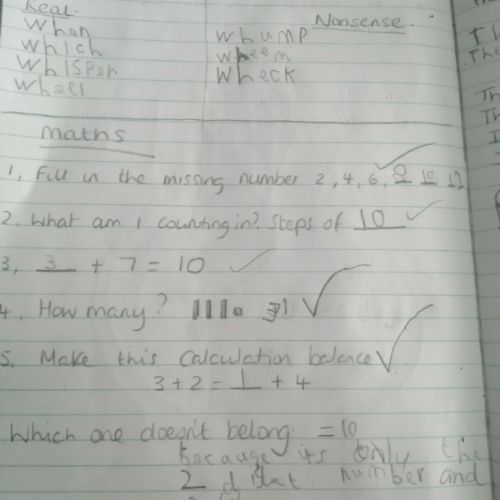 Real
Nonsense
When
whump
which
wheem
Whisper
Wheck
Wheel
maths
1, Fill in the missing number 2, 4, 6, 8 10 12
2. What am I counting in? Steps of 10
3, 3 + 7 = 10
4. How many? 31
5. Make this calculation balance
3 + 2 = 1 + 4
Which one doesn't belong =10
because its only the
2 number and